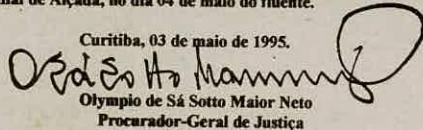 nal de Alçada, no dia 04 de maio do fluente.
Curitiba, 03 de maio de 1995.
Olympio de Sá Sotto Maior Neto
Procurador-Geral de Justiça